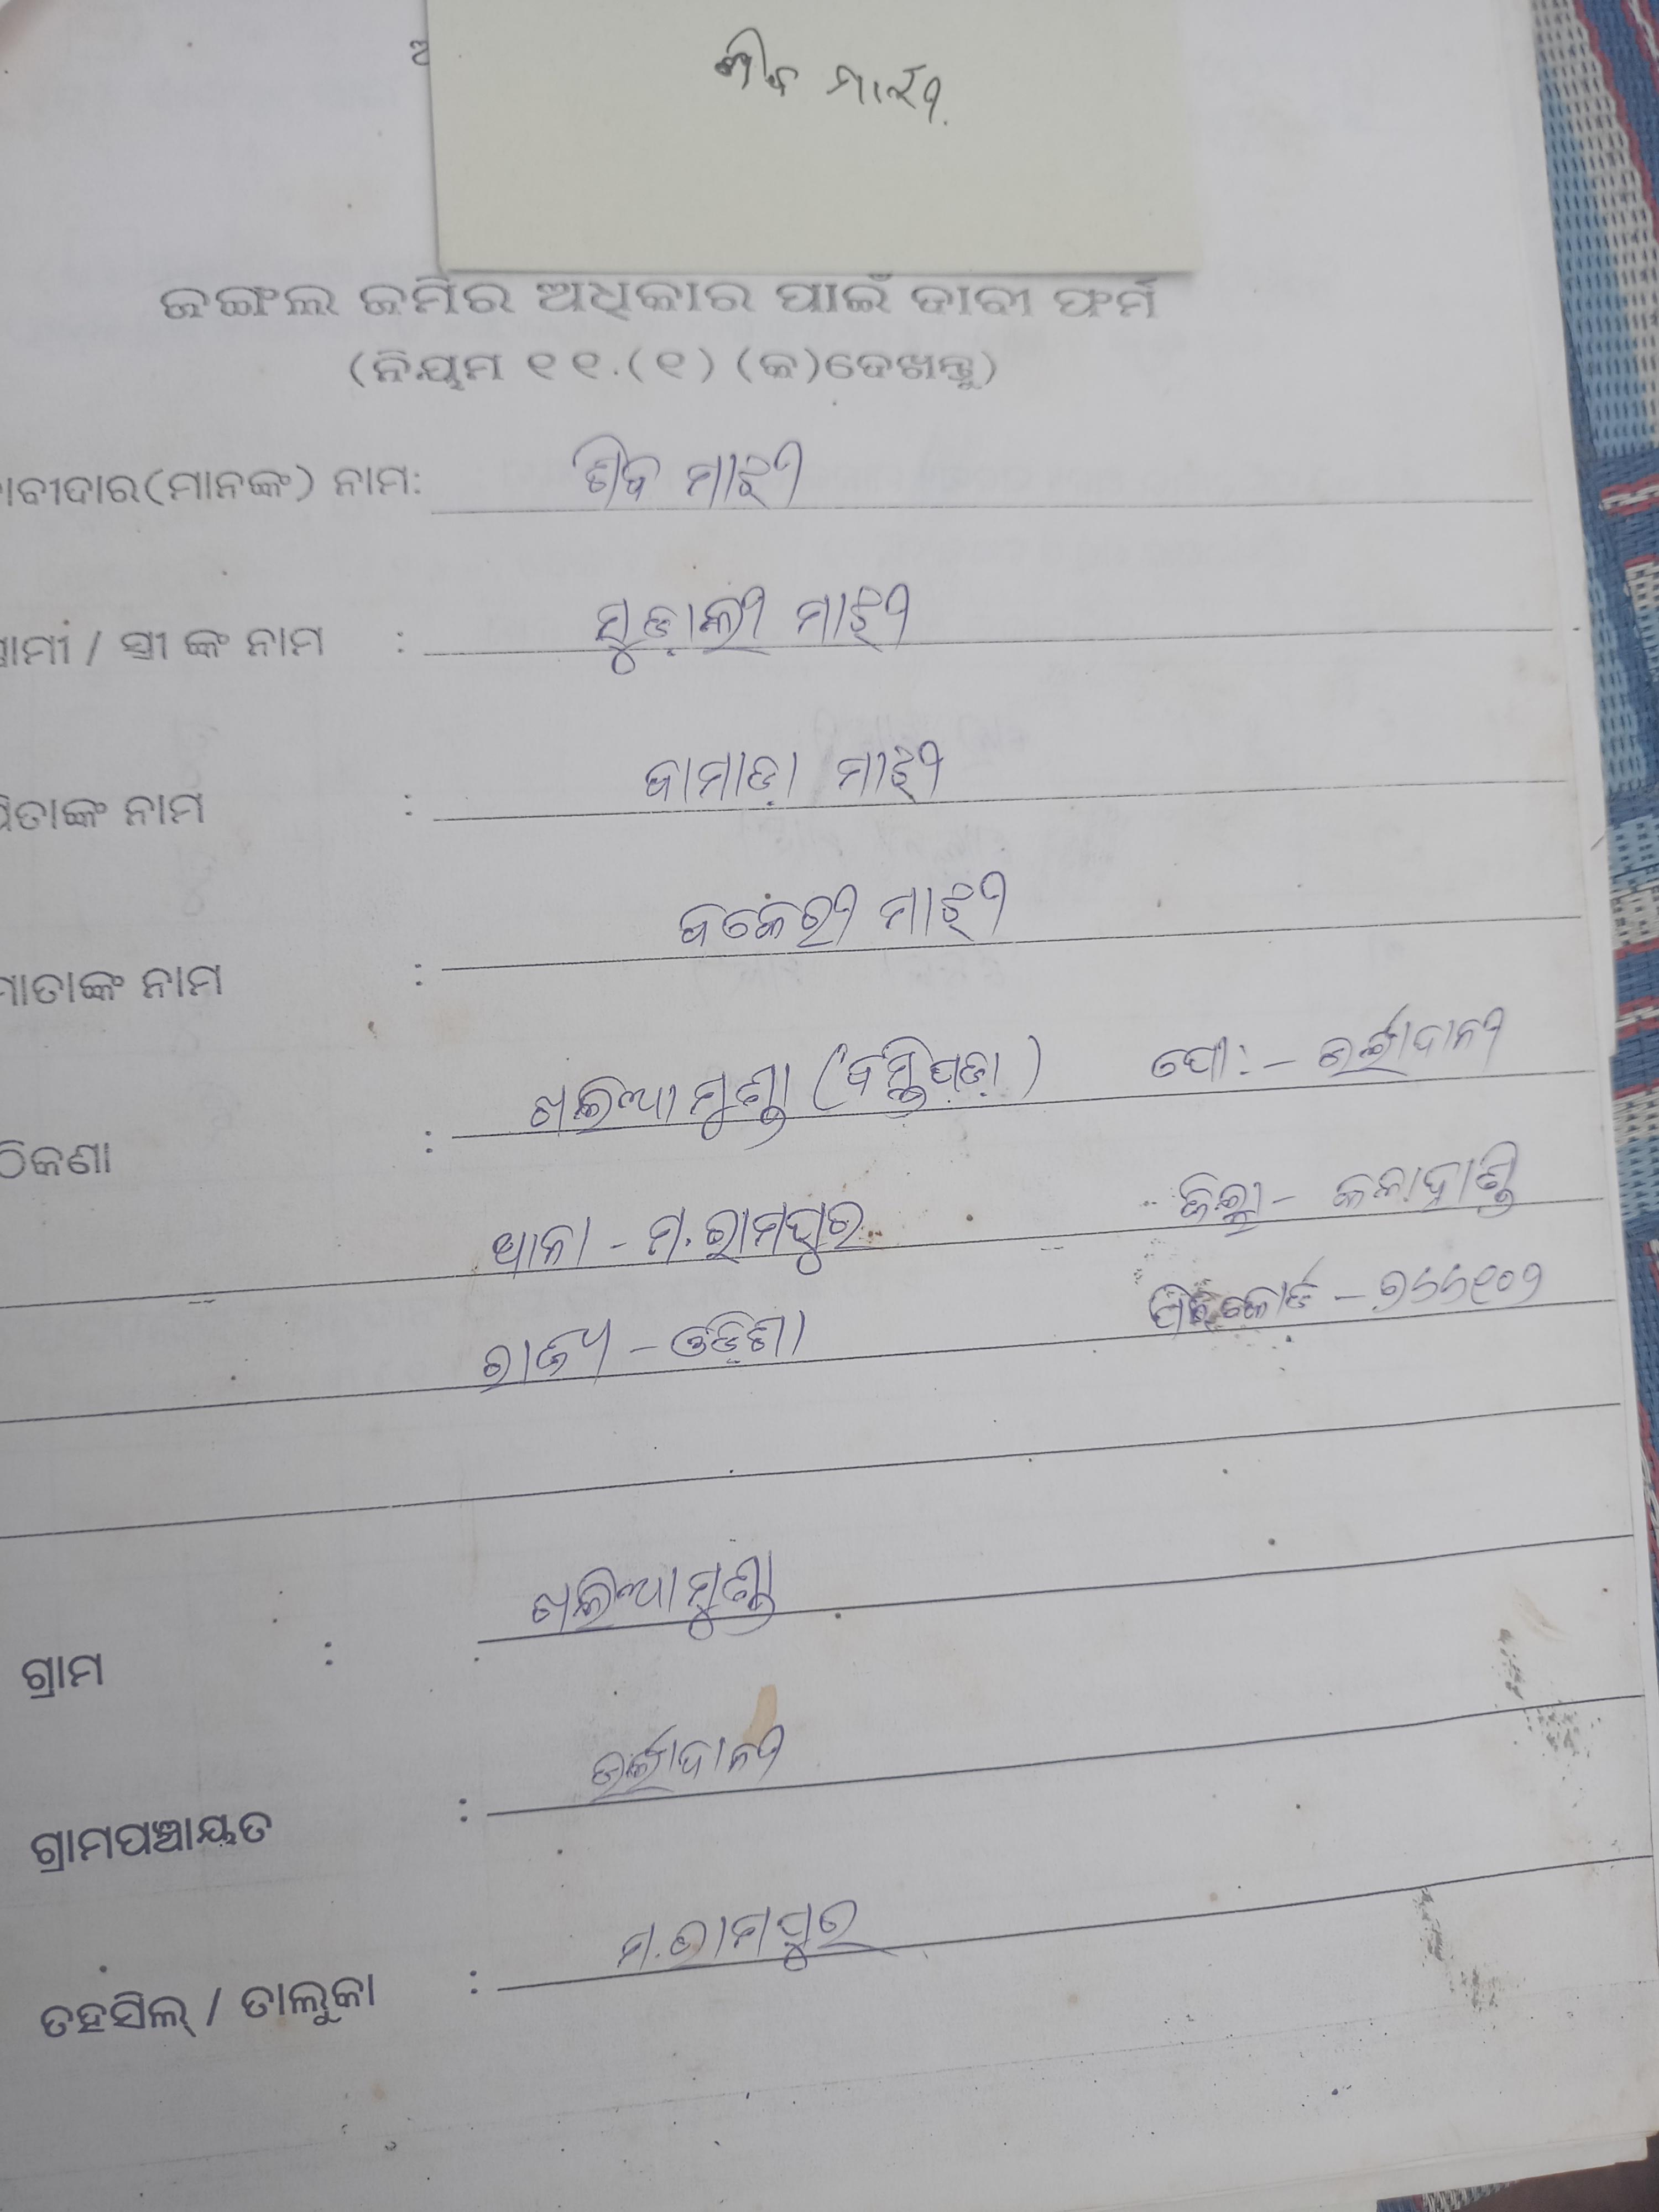 ମାଝୀ
ଜଙ୍ଗଲ ଜମିର ଅଧିକାର ପାଇଁ ଦାବୀ ଫର୍ମ
(ନିୟମ ୧୧.(୧) (କ)ଦେଖନ୍ତୁ)
ାବୀଦାର(ମାନଙ୍କ) ନାମ: ଶିବ ମାଝୀ
ାମୀ / ସ୍ତ୍ରୀ ଙ୍କ ନାମ : ମାଝୀ
ପିତାଙ୍କ ନାମ : ବାମାଡ଼ା ମାଝୀ
ମାତାଙ୍କ ନାମ : ବକେରୀ ମାଝୀ
ଠିକଣା : ଖଲିଆମୁଣ୍ଡା (ବସ୍ତିପଡ଼ା) ପୋ:-
ଥାନା - ମ.ରାମପୁର ଜିଲ୍ଲା - କଳାହାଣ୍ଡି
ରାଜ୍ୟ - ଓଡ଼ିଶା ପିନକୋର୍ଡ - ୭୬୬୧୦୨
ଗ୍ରାମ : ଖଲିଆମୁଣ୍ଡା
ଗ୍ରାମପଞ୍ଚାୟତ :
ତହସିଲ୍ / ତାଲୁକା : ମ.ରାମପୁର